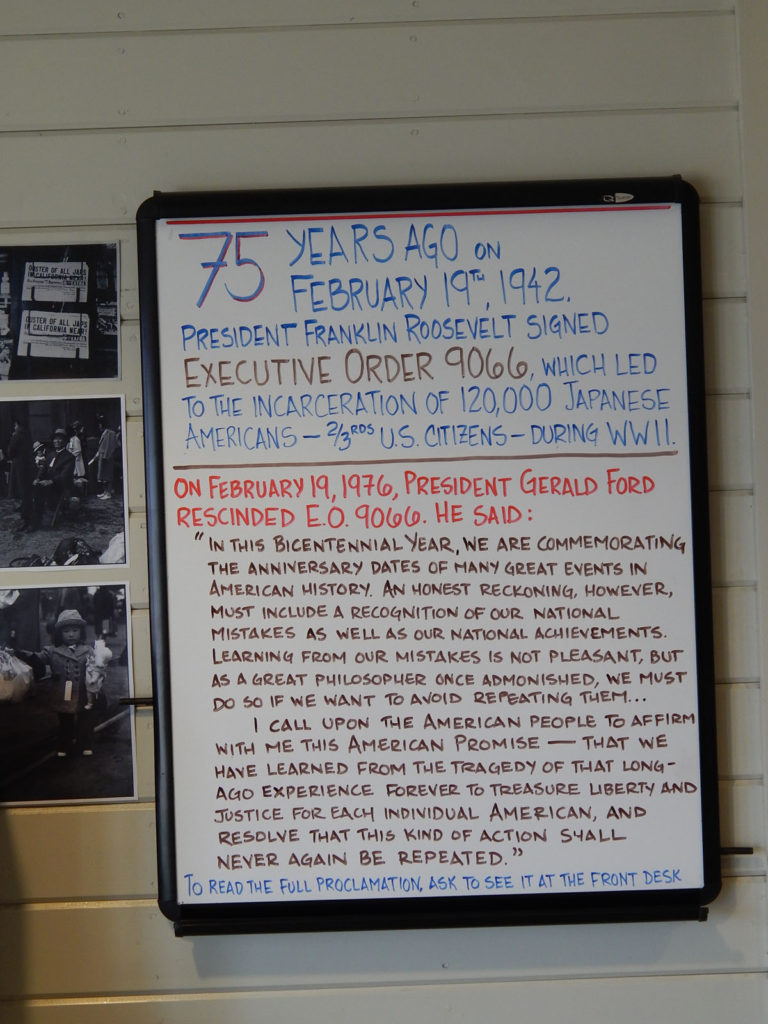 OUSTER OF ALL JAPS
IN CALIFORNIA NEAR!
OUSTER OF ALL JAPS
IN CALIFORNIA NEAR!
75 YEARS AGO ON
FEBRUARY 19TH, 1942.
PRESIDENT FRANKLIN ROOSEVELT SIGNED
EXECUTIVE ORDER 9066, WHICH LED
TO THE INCARCERATION OF 120,000 JAPANESE
AMERICANS – 2/3RDS U.S. CITIZENS – DURING WWII.
ON FEBRUARY 19, 1976, PRESIDENT GERALD FORD
RESCINDED E.O. 9066. HE SAID:
"IN THIS BICENTENNIAL YEAR, WE ARE COMMEMORATING
THE ANNIVERSARY DATES OF MANY GREAT EVENTS IN
AMERICAN HISTORY. AN HONEST RECKONING, HOWEVER,
MUST INCLUDE A RECOGNITION OF OUR NATIONAL
MISTAKES AS WELL AS OUR NATIONAL ACHIEVEMENTS.
LEARNING FROM OUR MISTAKES IS NOT PLEASANT, BUT
AS A GREAT PHILOSOPHER ONCE ADMONISHED, WE MUST
DO SO IF WE WANT TO AVOID REPEATING THEM...
I CALL UPON THE AMERICAN PEOPLE TO AFFIRM
WITH ME THIS AMERICAN PROMISE — THAT WE
HAVE LEARNED FROM THE TRAGEDY OF THAT LONG-
AGO EXPERIENCE FOREVER TO TREASURE LIBERTY AND
JUSTICE FOR EACH INDIVIDUAL AMERICAN, AND
RESOLVE THAT THIS KIND OF ACTION SHALL
NEVER AGAIN BE REPEATED."
TO READ THE FULL PROCLAMATION, ASK TO SEE IT AT THE FRONT DESK